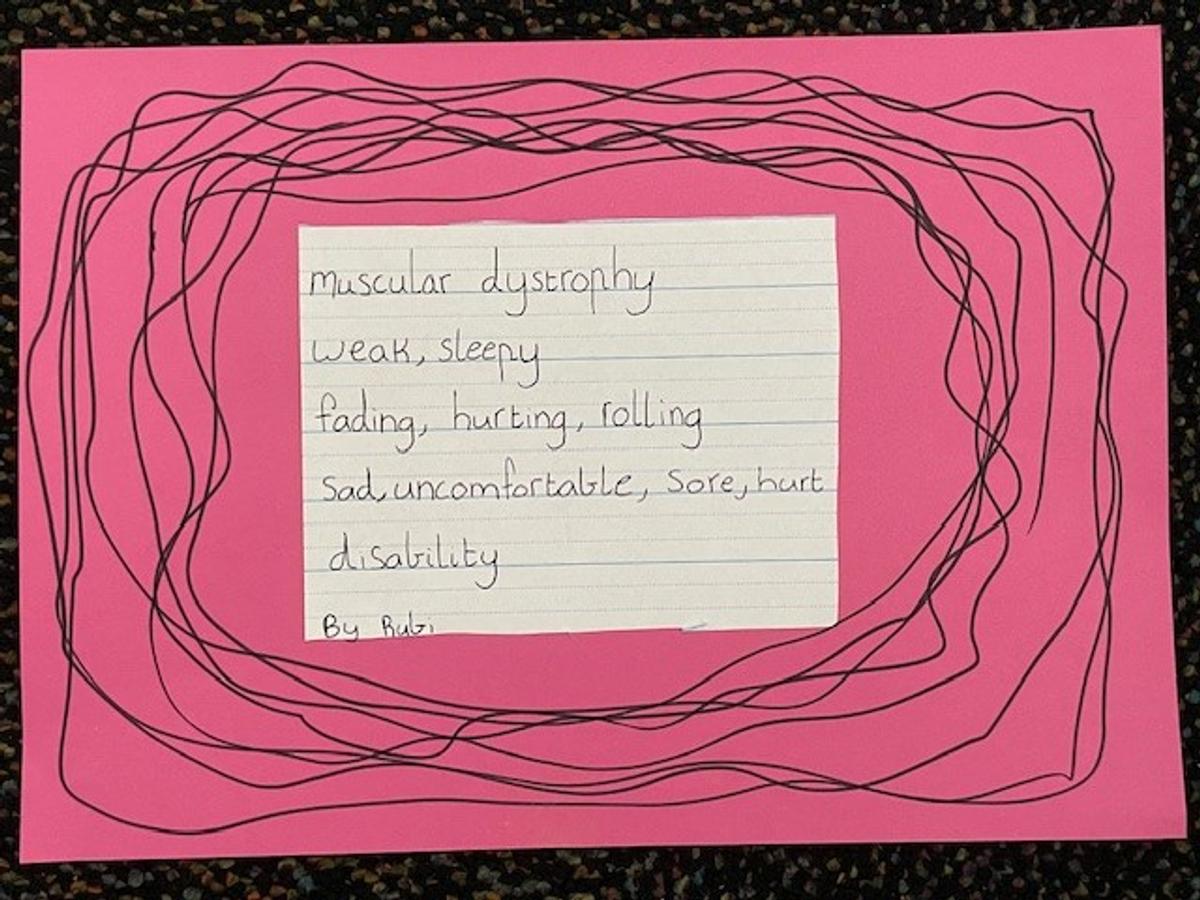 muscular dystrophy
weak, sleepy
fading, hurting, rolling
sad, uncomfortable, sore, hurt
disability
By Rubi